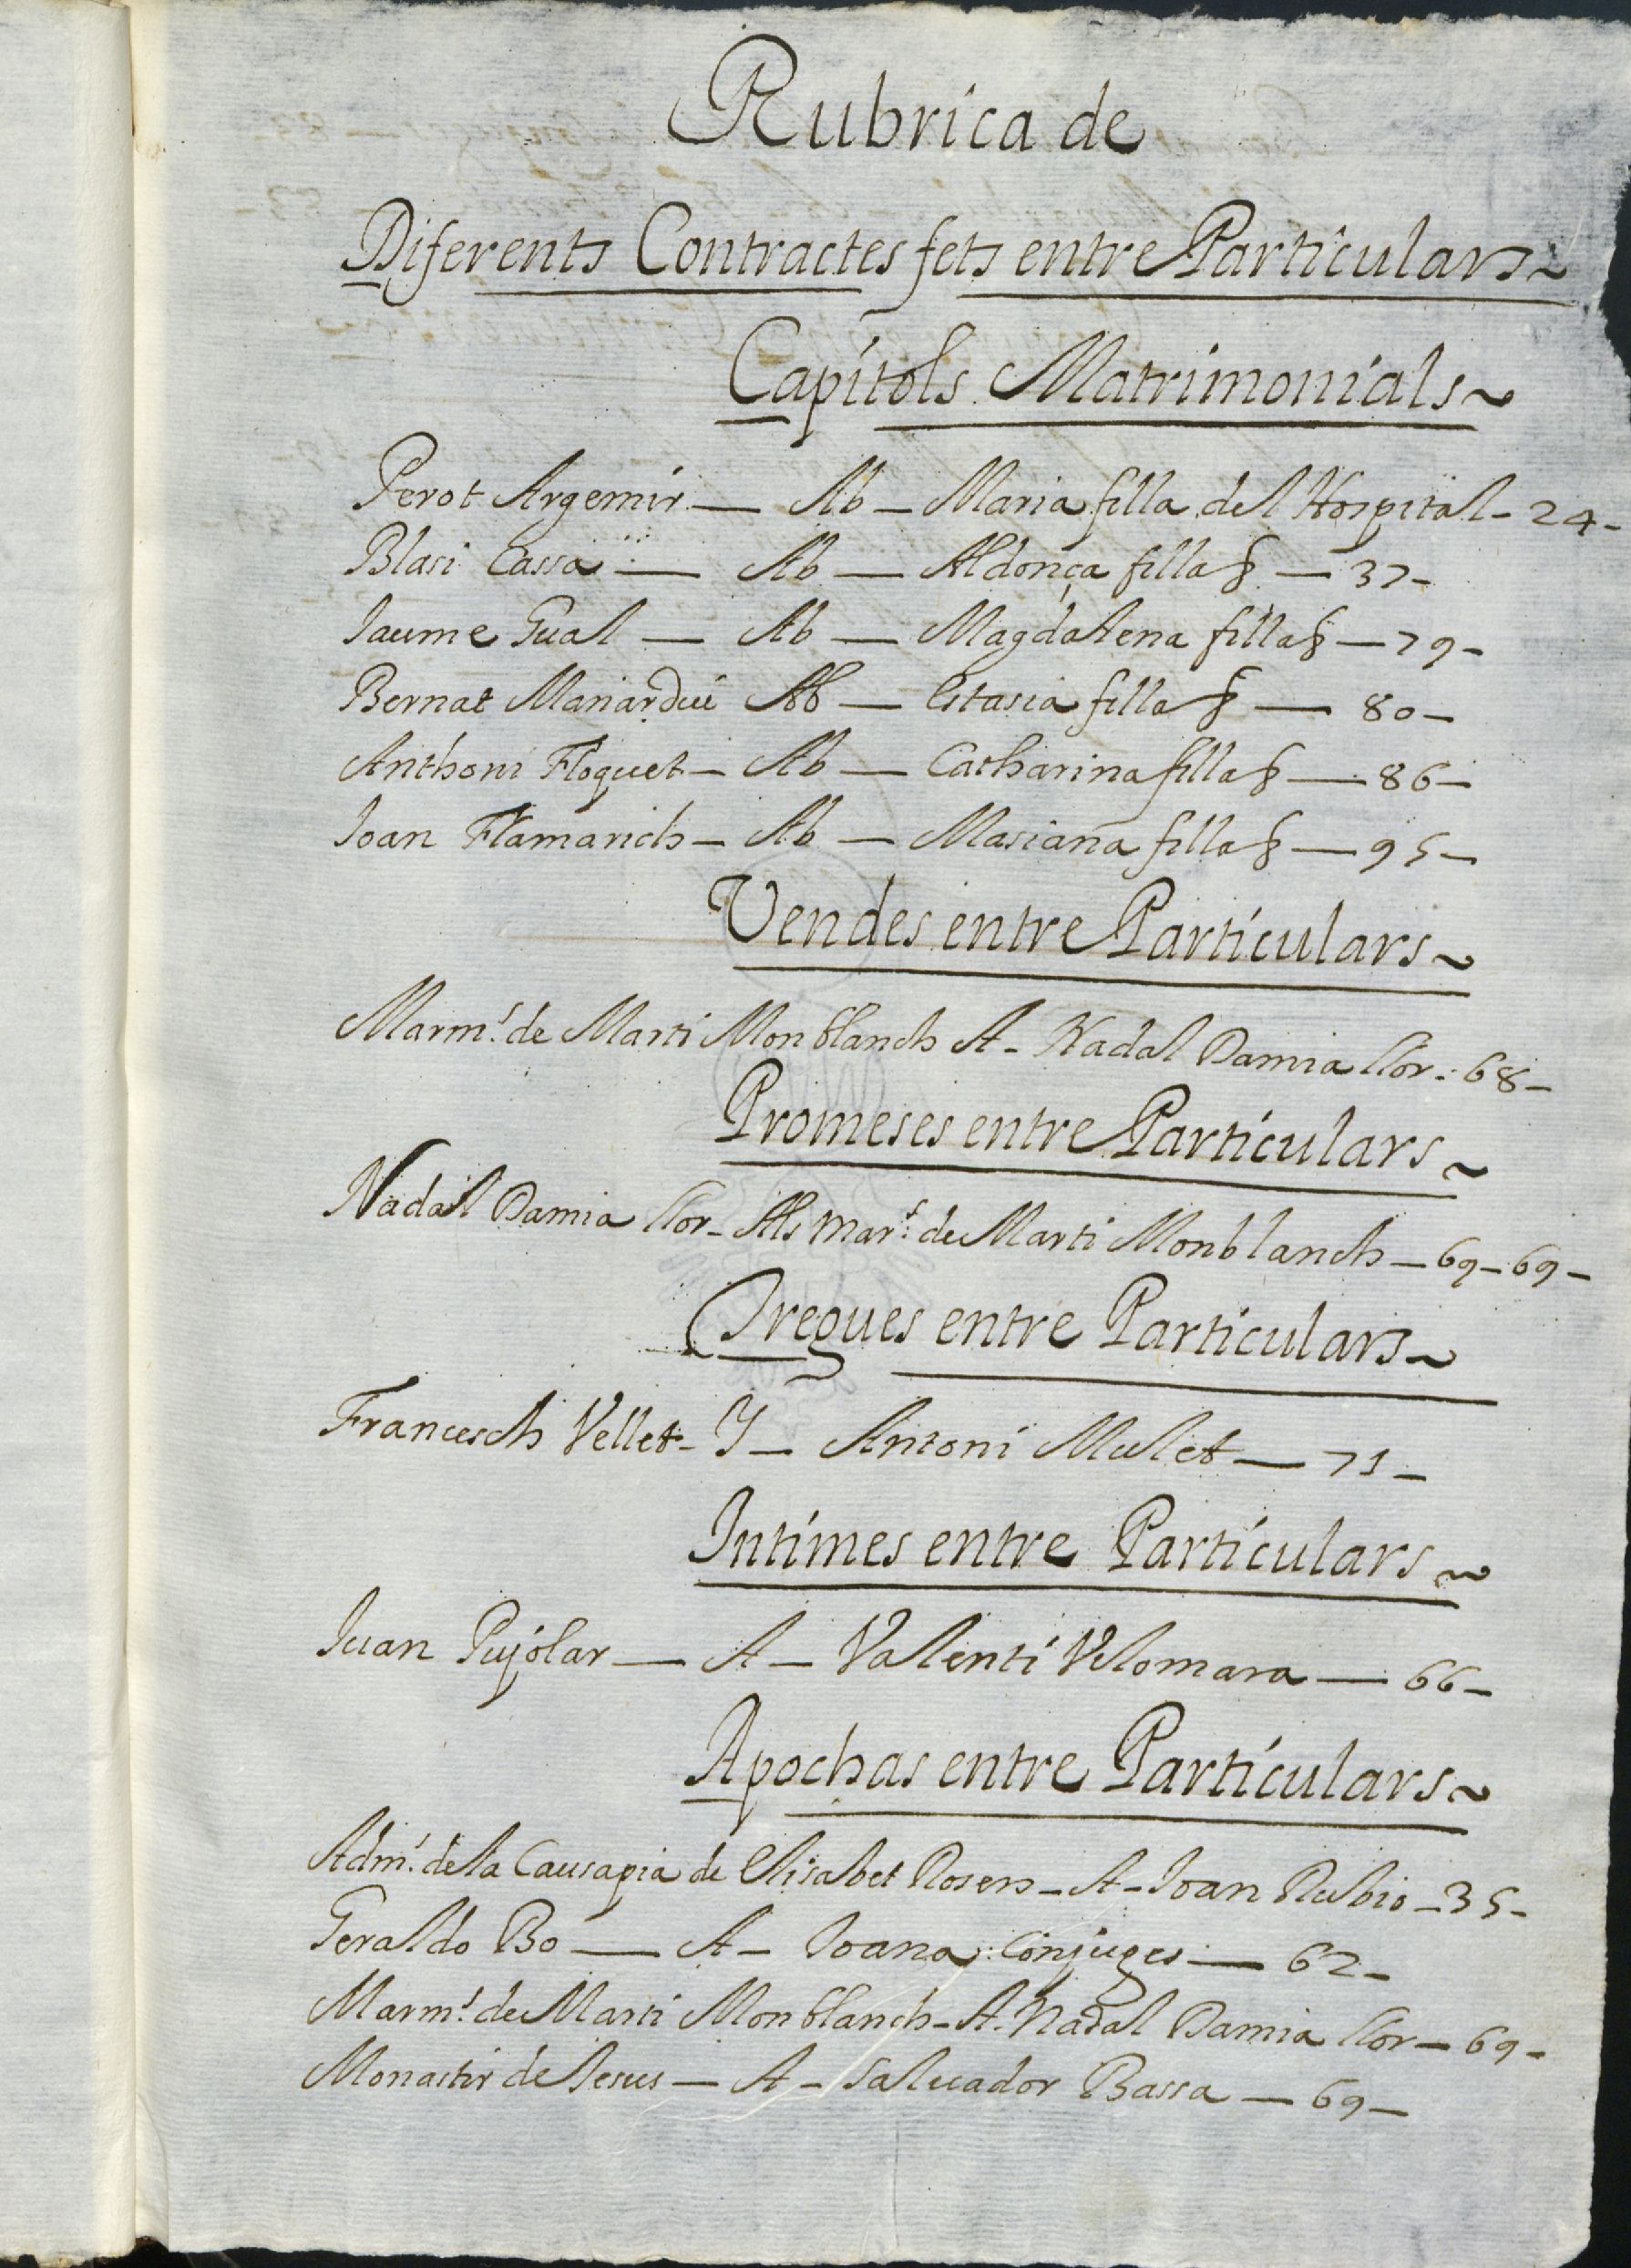 Rubrica de
Diferents Contractes fets entre Particulars~
Capitols Matrimonials~
Perot Argemir — Ab — Maria filla del Hospital - 24 -
Blasi Cassa — Ab — Aldonça filla § — 37 -
Jaume Gual — Ab — Magdalena filla § — 79 -
Bernat Manardui Ab — Estasia filla § — 80 -
Anthoni Floquet — Ab — Catharina filla § — 86 -
Joan Flamarich — Ab — Masiana filla § — 95 -
Vendes entre Particulars~
Marm.s de Marti Monblanch A - Nadal Damia llor - 68 -
Promeses entre Particulars~
Nadal Damia llor - Als Mar.s de Marti Monblanch — 69 - 69 -
Tregues entre Particulars~
Francesch Vellet - Y — Antoni Mulet — 71 -
Intimes entre Particulars~
Juan Pujolar — A — Valenti Vilomara — 66 -
Apochas entre Particulars~
Adm.s de la Causapia de Elisabet Rosers - A - Joan Rubio - 35 -
Geraldo Bo — A - Joana Conjuges — 62 -
Marm.s de Marti Monblanch - A. Nadal Damia llor — 69 -
Monastir de Jesus — A - Saluador Bassa — 69 -